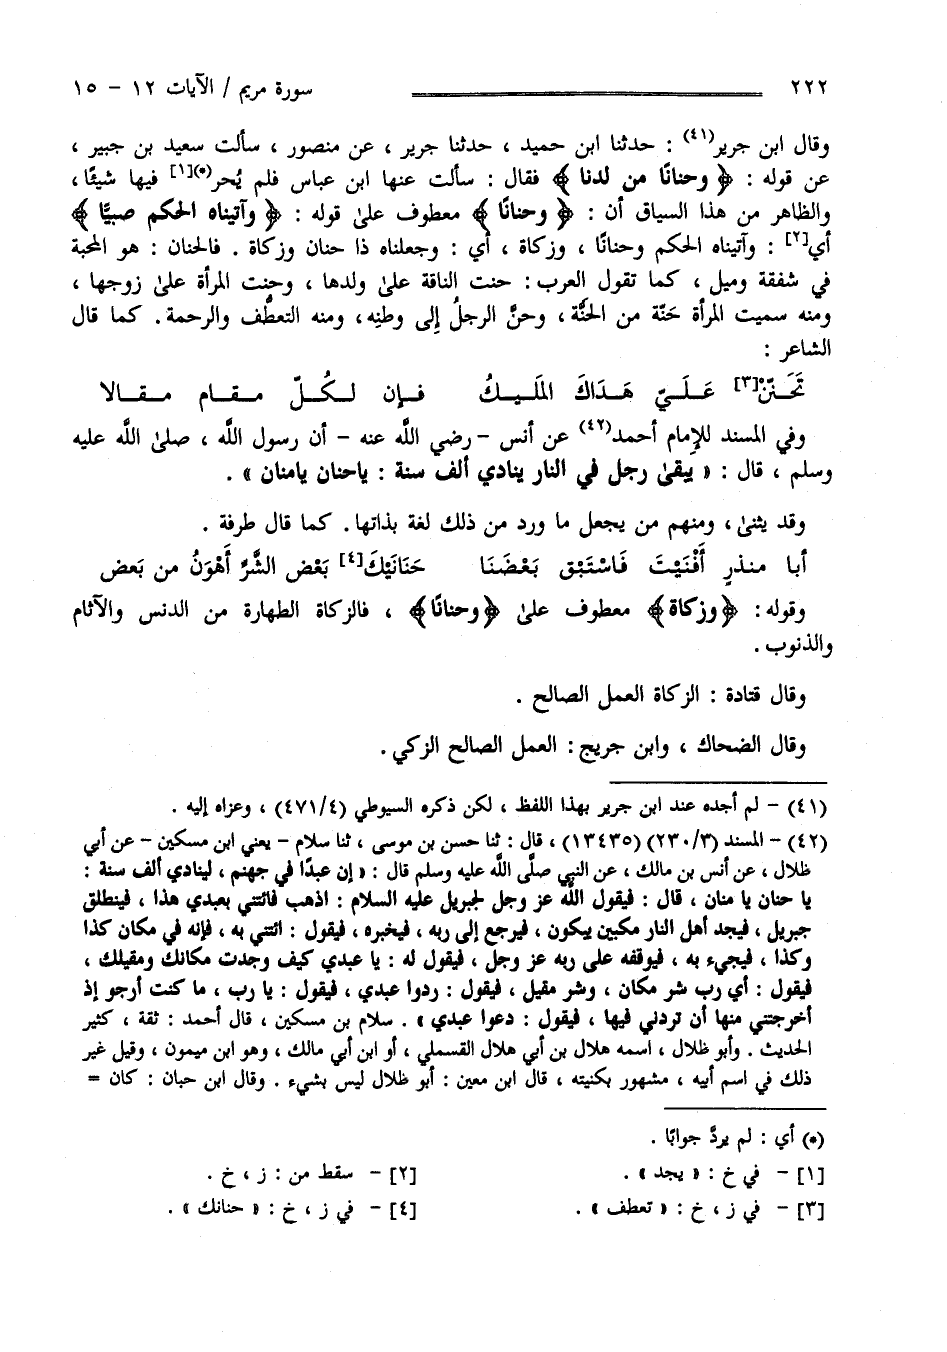 ٢٢٢ سورة مريم / الآيات ١٢ - ١٥
وقال ابن جرير(٤١) : حدثنا ابن حميد ، حدثنا جرير ، عن منصور ، سألت سعيد بن جبير ،
عن قوله : ﴿ وحنانًا من لدنا ﴾ فقال : سألت عنها ابن عباس فلم يُحر(*)[١] فيها شيئًا ،
والظاهر من هذا السياق أن : ﴿ وحنانًا ﴾ معطوف على قوله : ﴿ وآتيناه الحكم صبيًّا ﴾
أي[٢] : وآتيناه الحكم وحنانًا ، وزكاة ، أي : وجعلناه ذا حنان وزكاة . فالحنان : هو المحبة
في شفقة وميل ، كما تقول العرب : حنت الناقة على ولدها ، وحنت المرأة على زوجها ،
ومنه سميت المرأة حَنّة من الحَنَّة ، وحنَّ الرجلُ إلى وطنِه ، ومنه التعطُّف والرحمة . كما قال
الشاعر :
تَحَنَّنْ[٣] عَلَيَّ هَدَاكَ المَلَيكُ فإن لكُلّ مقام مقالا
وفي المسند للإمام أحمد(٤٢) عن أنس - رضي اللَّه عنه - أن رسول اللَّه ، صلى اللَّه عليه
وسلم ، قال : « يَبقى رجل في النار ينادي ألف سنة : ياحنان يامنان » .
وقد يثنى ، ومنهم من يجعل ما ورد من ذلك لغة بذاتها . كما قال طرفة .
أبا منذرٍ أَفْنَيْتَ فَاسْتَبْقِ بَعْضَنَا حَنَانَيْكَ[٤] بَعْض الشَّرِّ أَهْوَنُ من بَعض
وقوله : ﴿وزكاة﴾ معطوف على ﴿وحنانًا﴾ ، فالزكاة الطهارة من الدنس والآثام
والذنوب .
وقال قتادة : الزكاة العمل الصالح .
وقال الضحاك ، وابن جريج : العمل الصالح الزكي .
(٤١) - لم أجده عند ابن جرير بهذا اللفظ ، لكن ذكره السيوطي (٤/٤٧١) ، وعزاه إليه .
(٤٢) - المسند (٣/٢٣٠) (١٣٤٣٥) ، قال : ثنا حسن بن موسى ، ثنا سلام - يعني ابن مسكين - عن أبي
ظلال ، عن أنس بن مالك ، عن النبي صلَّى اللَّه عليه وسلم قال : « إن عبدًا في جهنم ، لينادي ألف سنة :
يا حنان يا منان ، قال : فيقول اللَّه عز وجل لجبريل عليه السلام : اذهب فائتني بعبدي هذا ، فينطلق
جبريل ، فيجد أهل النار مكبين يبكون ، فيرجع إلى ربه ، فيخبره ، فيقول : ائتني به ، فإنه في مكان كذا
وكذا ، فيجيء به ، فيوقفه على ربه عز وجل ، فيقول له : يا عبدي كيف وجدت مكانك ومقيلك ،
فيقول : أي رب شر مكان ، وشر مقيل ، فيقول : ردوا عبدي ، فيقول : يا رب ، ما كنت أرجو إذ
أخرجتني منها أن تردني فيها ، فيقول : دعوا عبدي » . سلام بن مسكين ، قال أحمد : ثقة ، كثير
الحديث . وأبو ظلال ، اسمه هلال بن أبي هلال القسملي ، أو ابن أبي مالك ، وهو ابن ميمون ، وقيل غير
ذلك في اسم أبيه ، مشهور بكنيته ، قال ابن معين : أبو ظلال ليس بشيء . وقال ابن حبان : كان =
(*) أي : لم يردَّ جوابًا .
[١] - في خ : « يجد » . [٢] - سقط من : ز ، خ .
[٣] - في ز ، خ : « تعطف » . [٤] - في ز ، خ : « حنانك » .